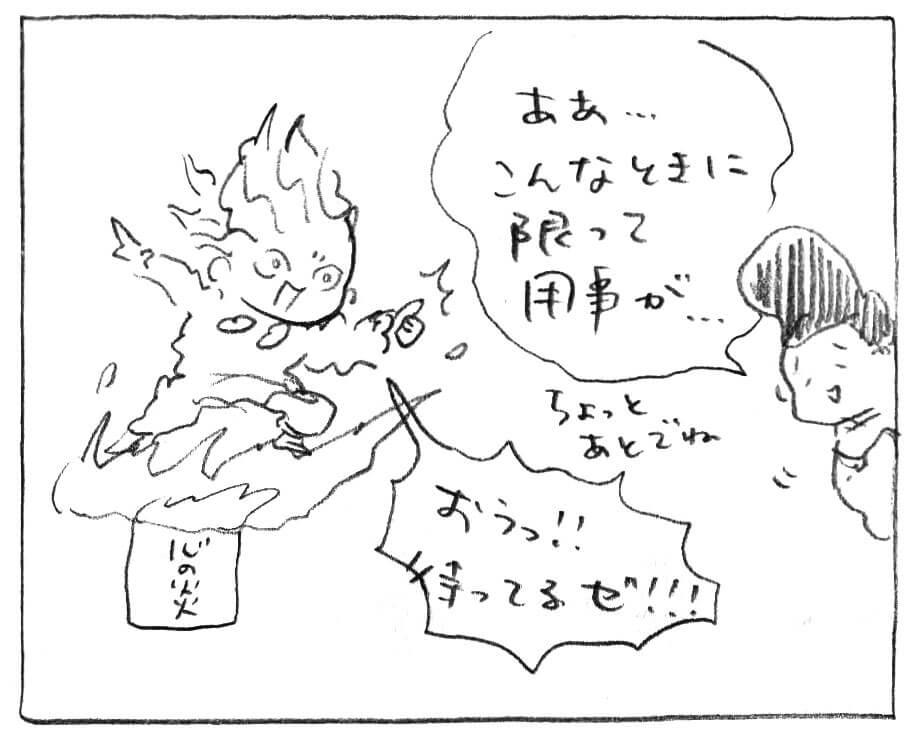 ああ…
こんなときに
限って
用事が…
ちょっと
あとでね
おうっ!!
待ってるゼ!!!
心の炎